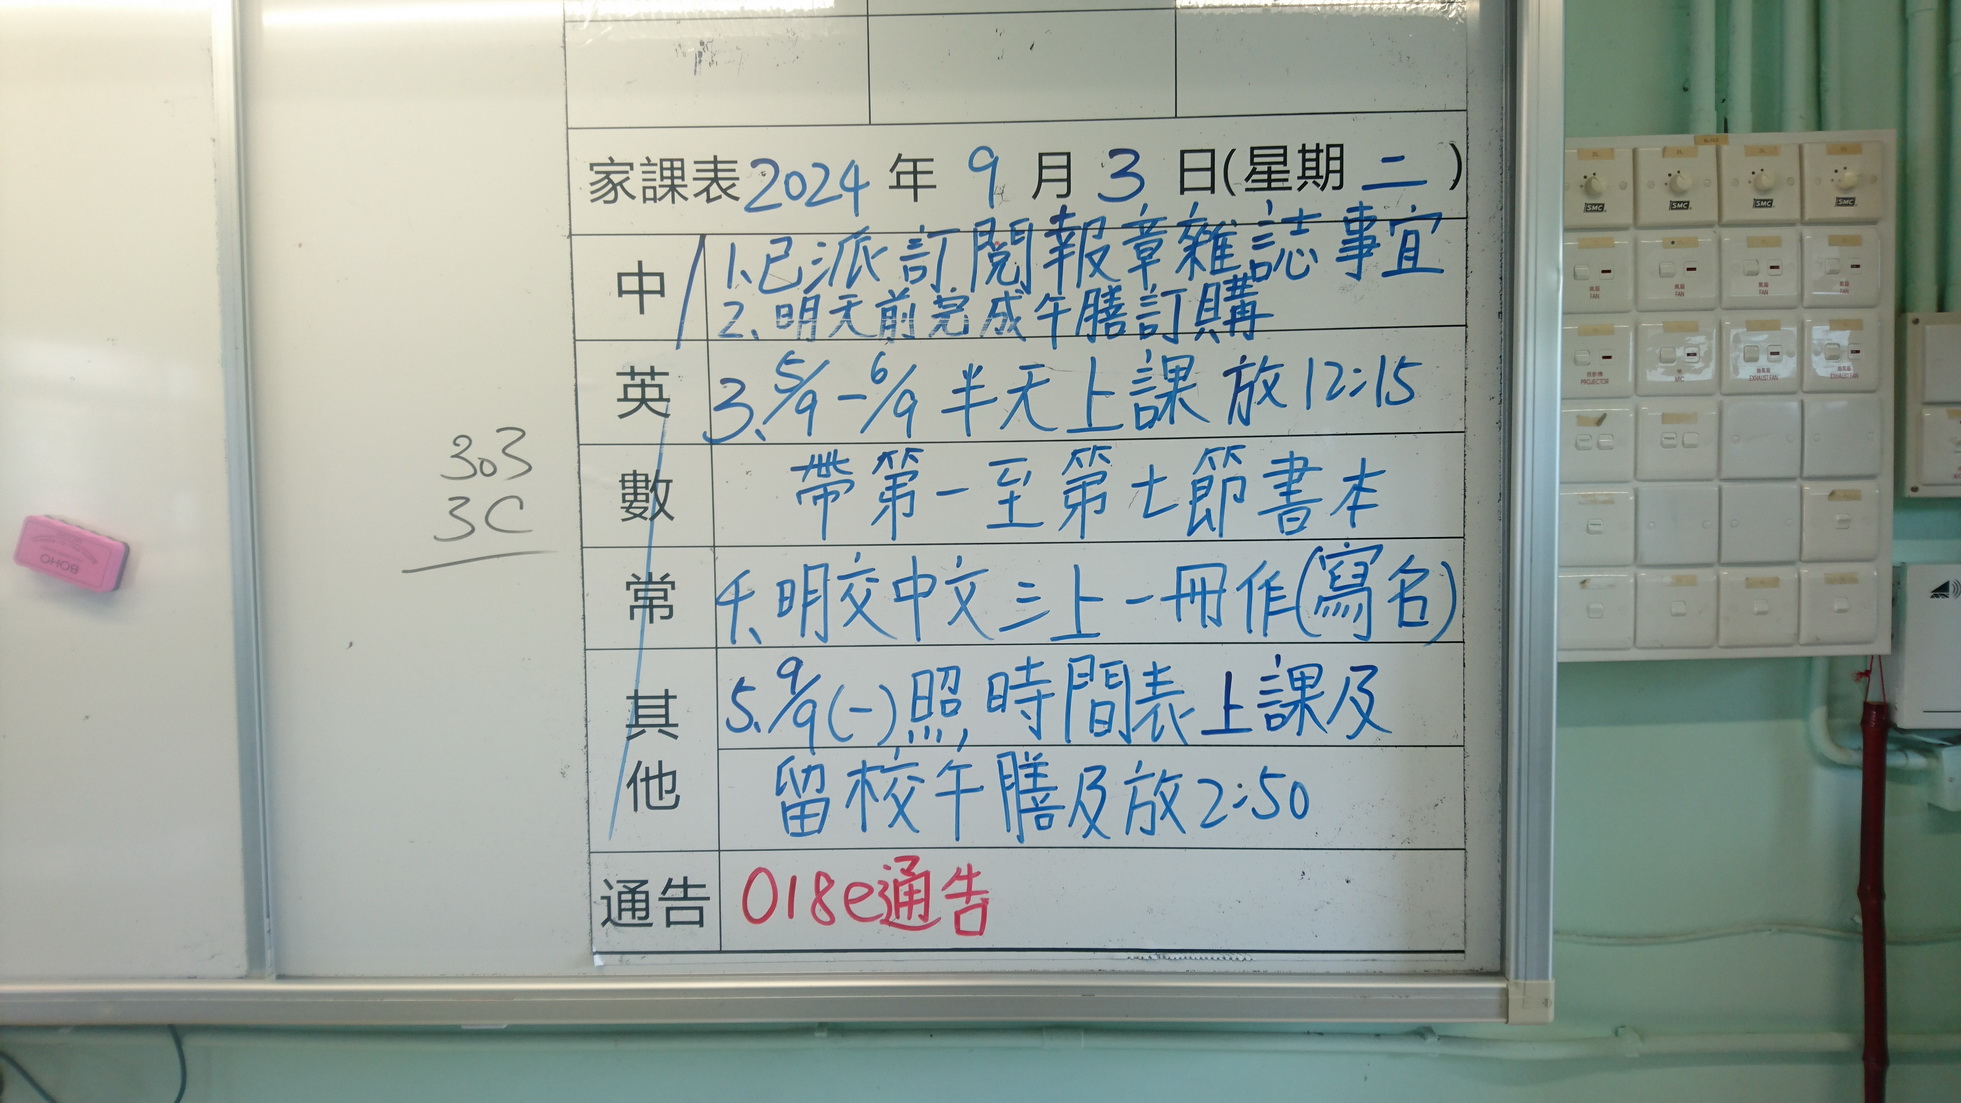 家課表2024年9月3日(星期二)
中 1.已派訂閱報章雜誌事宜
2.明天前完成午膳訂購
英 3.5/9-6/9半天上課放12:15
數 帶第一至第七節書本
常 4.明交中文三上一冊作(寫名)
其他 5.9/9(一)照時間表上課及
留校午膳及放2:50
通告 018e通告
303
3C
BOHO
SMC
SMC
SMC
SMC
FAN
FAN
FAN
FAN
PROJECTOR
MIC
EXHAUST FAN
EXHAUST FAN